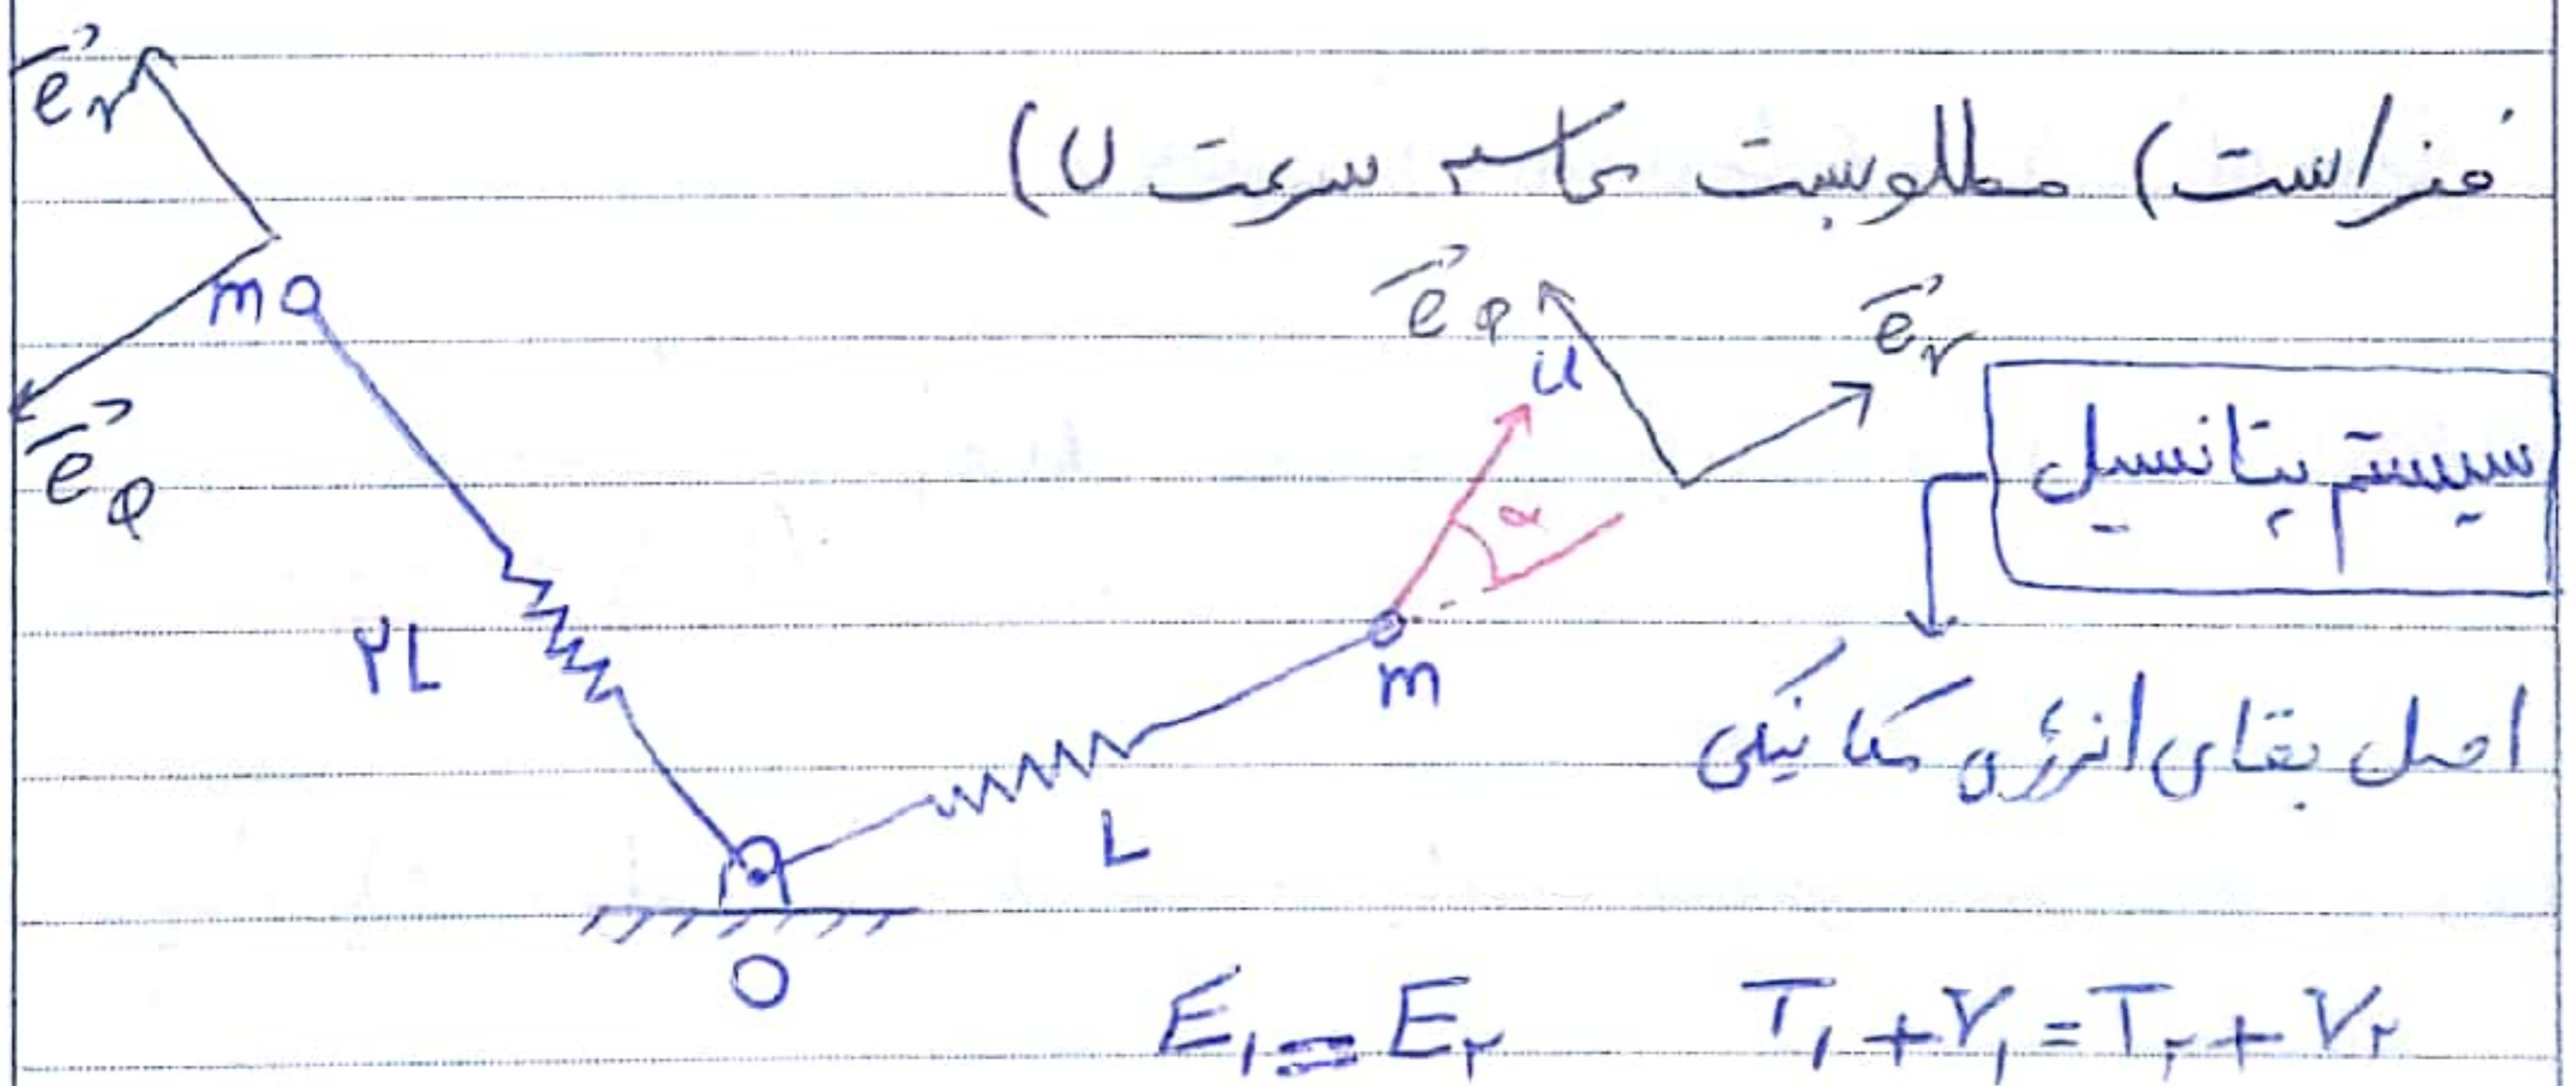 فنر است) مطلوبست محاسبه سرعت U)
e⃗r
e⃗φ
m
۲L
e⃗φ
e⃗r
u
α
m
L
O
سیستم پتانسیل
اصل بقای انرژی مکانیکی
E۱ = E۲    T۱ + V۱ = T۲ + V۲